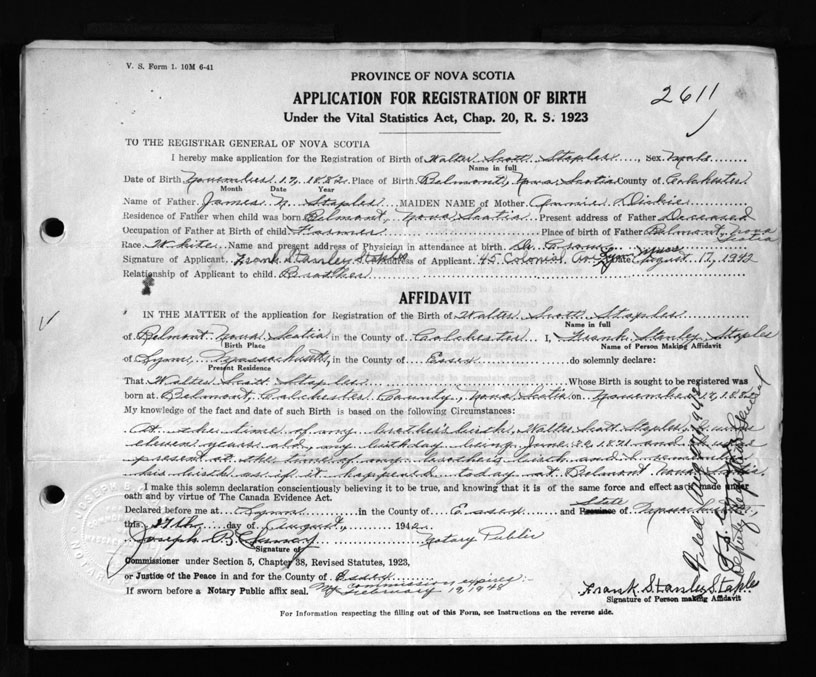 V. S. Form 1. 10M 6-41
PROVINCE OF NOVA SCOTIA
2611
APPLICATION FOR REGISTRATION OF BIRTH
Under the Vital Statistics Act, Chap. 20, R. S. 1923
TO THE REGISTRAR GENERAL OF NOVA SCOTIA
I hereby make application for the Registration of Birth of Walter Scott Staples, Sex Male
Name in full
Date of Birth November 17, 1882 Place of Birth Belmont, Nova Scotia County of Colchester
Month Date Year
Name of Father James Staples MAIDEN NAME of Mother Annie Dickie
Residence of Father when child was born Belmont, Nova Scotia Present address of Father Deceased
Occupation of Father at Birth of child Farmer Place of birth of Father Belmont, Nova Scotia
Race White Name and present address of Physician in attendance at birth. Dr.
Signature of Applicant. Frank Stanley Staples Address of Applicant. 45 Colonial Ave Lynn Mass Date August 17, 1942
Relationship of Applicant to child. Brother
AFFIDAVIT
IN THE MATTER of the application for Registration of the Birth of Walter Scott Staples
Name in full
of Belmont Nova Scotia in the County of Colchester I, Frank Stanley Staples
Birth Place Name of Person Making Affidavit
of Lynn, Massachusetts, in the County of Essex do solemnly declare:
Present Residence
That Walter Scott Staples Whose Birth is sought to be registered was
born at Belmont, Colchester County, Nova Scotia on November 17, 1882
My knowledge of the fact and date of such Birth is based on the following Circumstances:
At the time of my brother's birth, Walter Scott Staples, I was
eleven years old, my birthday being June 1871 and I was
present at the time of my brother's birth and I remember
his birth as if it happened today at Belmont Nova Scotia
I make this solemn declaration conscientiously believing it to be true, and knowing that it is of the same force and effect as if made under
oath and by virtue of The Canada Evidence Act.
Declared before me at Lynn in the County of Essex and State Province of Massachusetts
this 17th day of August, 1942.
Joseph B. Notary Public
Signature of
Commissioner under Section 5, Chapter 38, Revised Statutes, 1923,
or Justice of the Peace in and for the County of Essex
If sworn before a Notary Public affix seal. My commission expires:- February 19, 1948
Frank Stanley Staples
Signature of Person making Affidavit
For Information respecting the filling out of this Form, see Instructions on the reverse side.
Filed Aug 1942
Deputy Registrar General